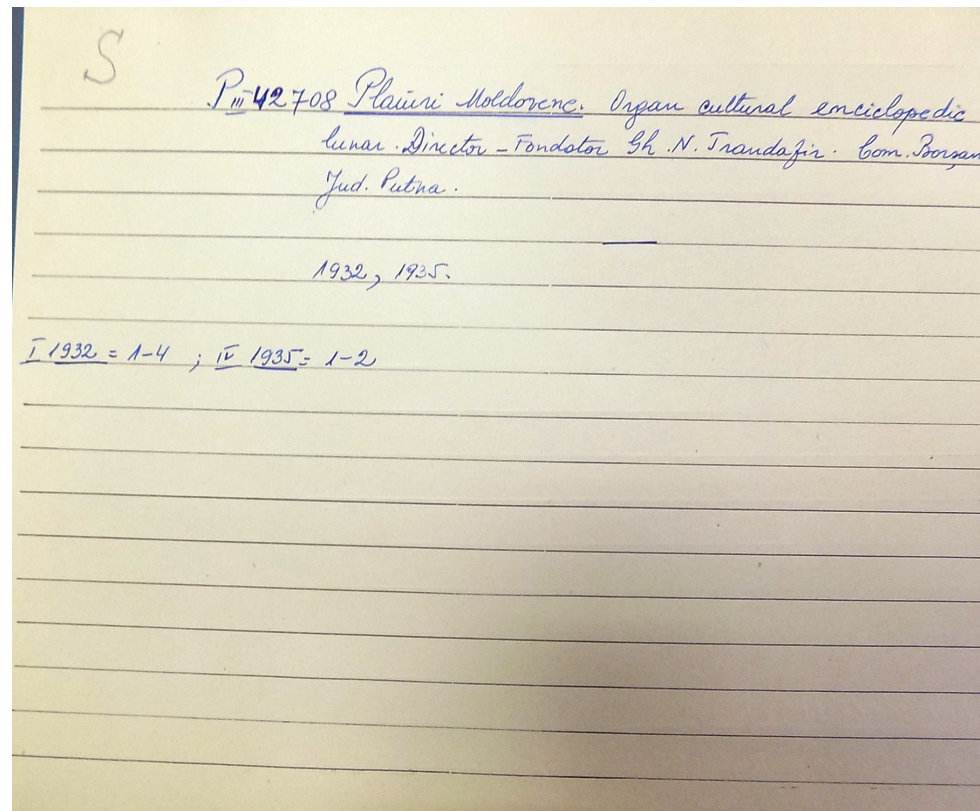 S
P III 42708 Plaiuri Moldovene. Organ cultural enciclopedic
lunar. Director - Fondator Gh. N. Trandafir. Com. Borșan
Jud. Putna.
1932, 1935.
I 1932 = 1-4 ; IV 1935 = 1-2